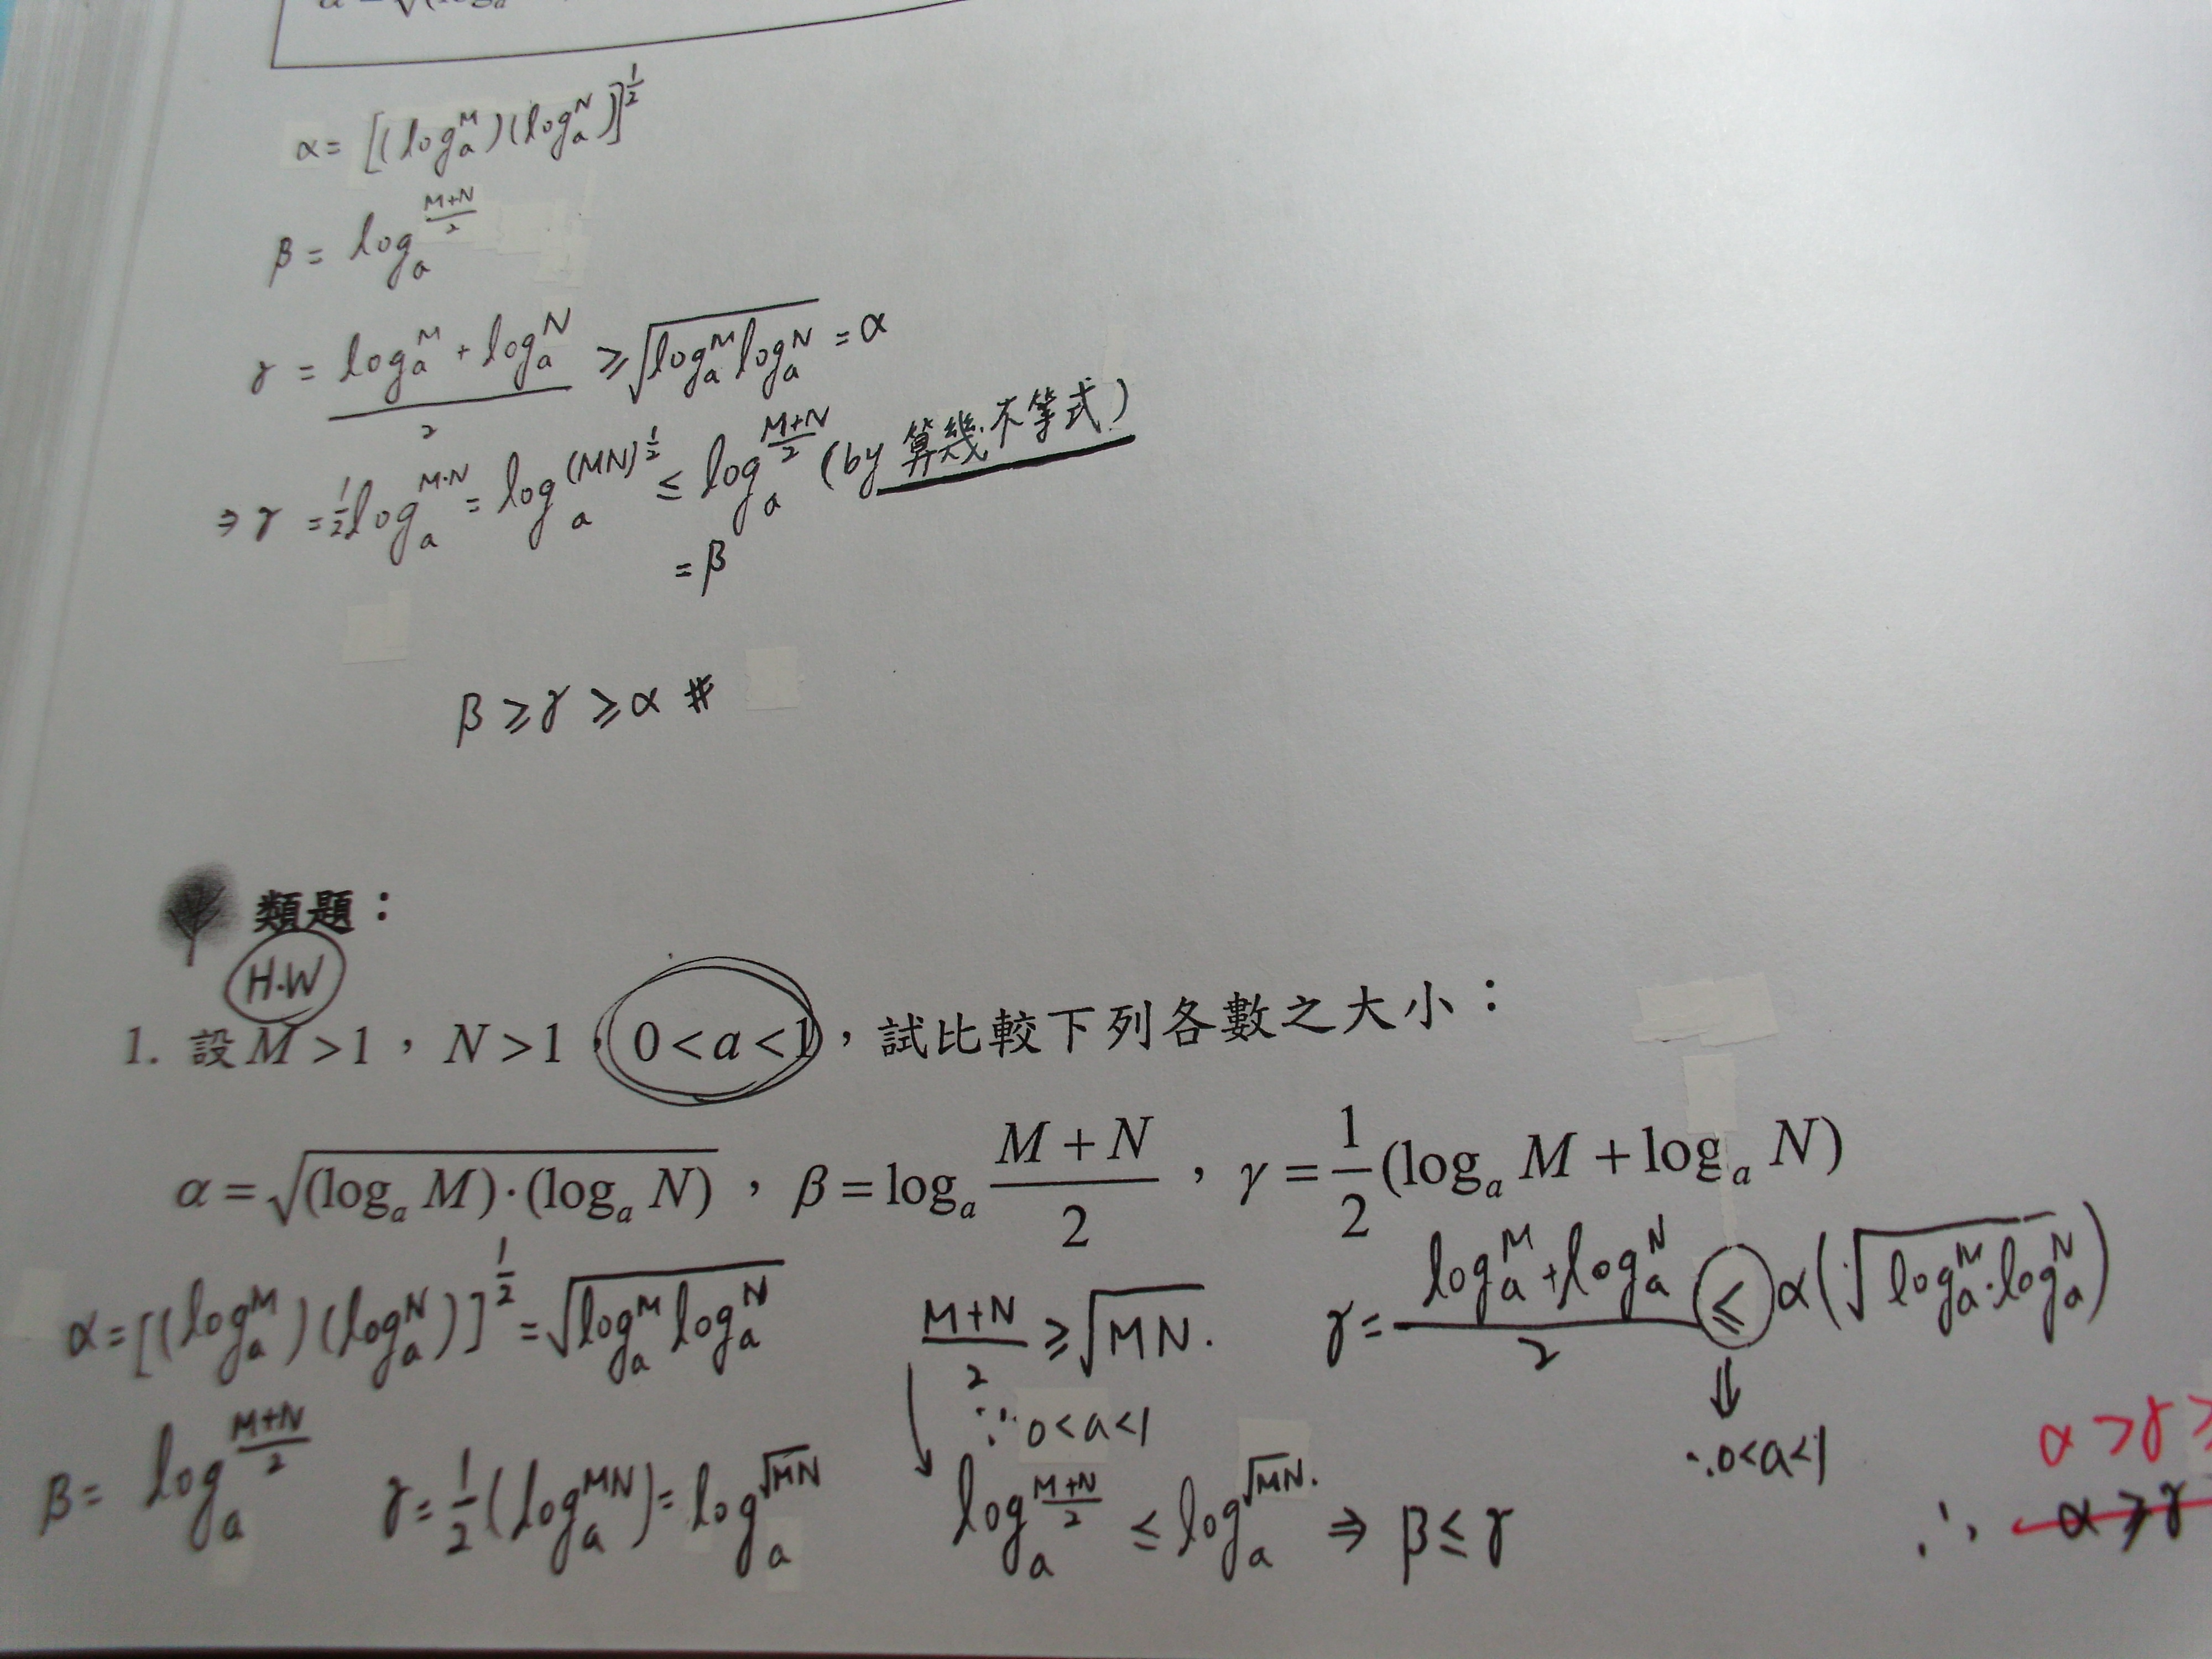 α = [(log_a^M)(log_a^N)]^{1/2}
β = log_a^{\frac{M+N}{2}}
γ = \frac{log_a^M + log_a^N}{2} ≥ √(log_a^M log_a^N) = α
⇒ γ = \frac{1}{2} log_a^{M·N} = log_a^{(MN)^{1/2}} ≤ log_a^{\frac{M+N}{2}} (by 算幾不等式)
= β
β ≥ γ ≥ α #
類題：
H.W
1. 設 M > 1，N > 1，0 < a < 1，試比較下列各數之大小：
α = √((log_a M)·(log_a N))，β = log_a \frac{M + N}{2}，γ = \frac{1}{2}(log_a M + log_a N)
α = [(log_a^M)(log_a^N)]^{1/2} = √(log_a^M log_a^N)
\frac{M+N}{2} ≥ √MN.
γ = \frac{log_a^M + log_a^N}{2} ≤ α(√(log_a^M · log_a^N))
⇓
∵ 0 < a < 1
∵ 0 < a < 1
β = log_a^{\frac{M+N}{2}}
γ = \frac{1}{2}(log_a^{MN}) = log_a^{√MN}
log_a^{\frac{M+N}{2}} ≤ log_a^{√MN}. ⇒ β ≤ γ
α > γ >
∴ α ≥ γ